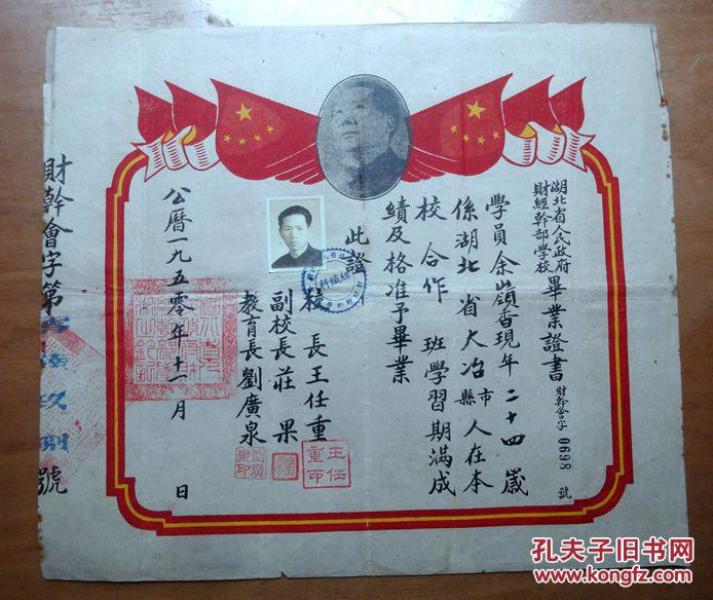 湖北省人民政府
財經幹部學校
畢業證書
財幹會字0698號
學員余嶺香現年二十四歲
係湖北省大冶市縣人在本
校合作班學習期滿成
績及格准予畢業
此證
校長王任重
副校長莊果
教育長劉廣泉
王任重印
組織科
公曆一九五零年十一月 日
財幹會字第 號
孔夫子旧书网
www.kongfz.com